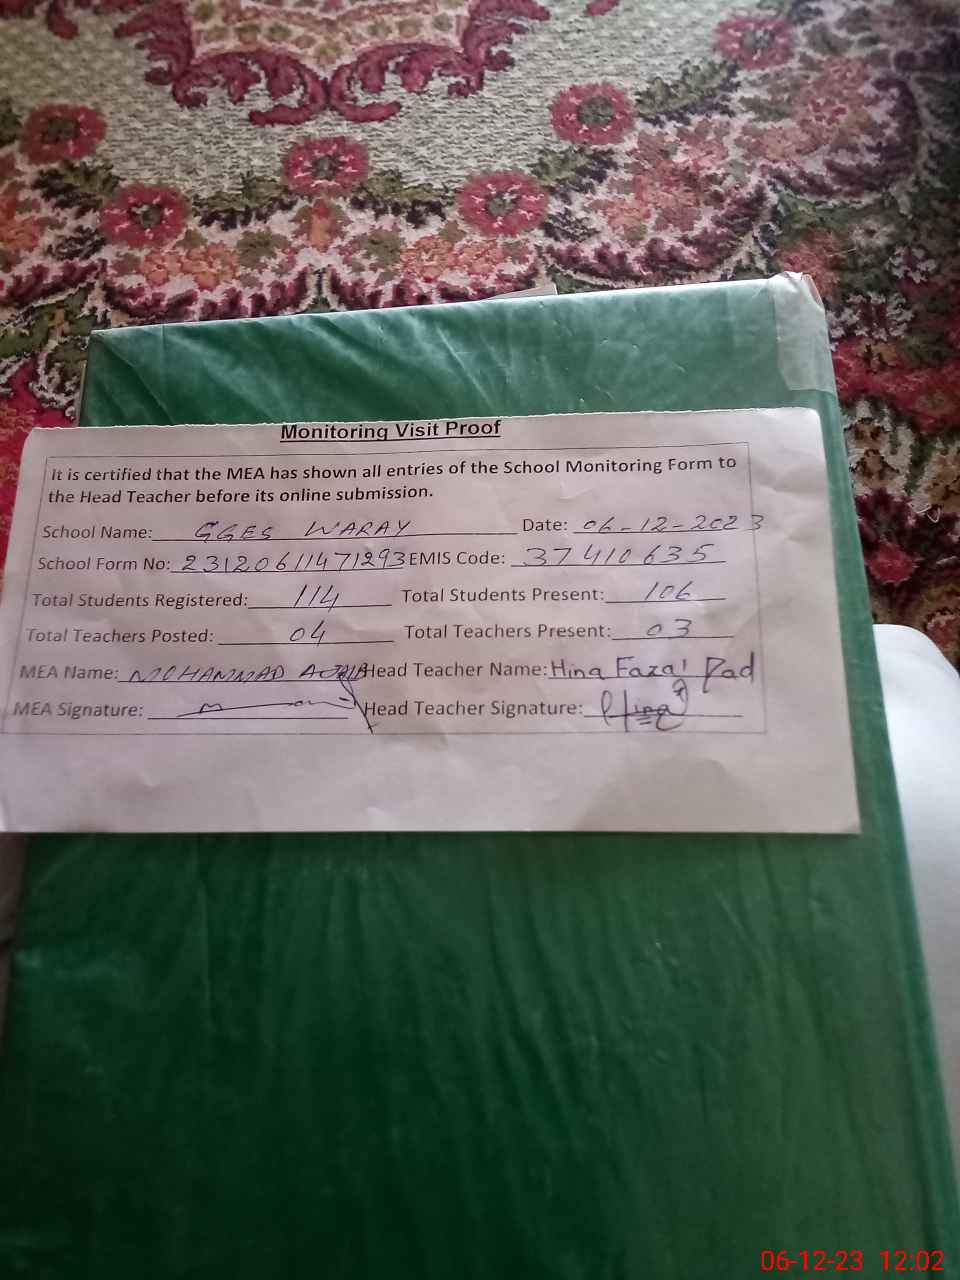 Monitoring Visit Proof
It is certified that the MEA has shown all entries of the School Monitoring Form to
the Head Teacher before its online submission.
School Name: GGES WARAY Date: 06-12-2023
School Form No: 23120611471293 EMIS Code: 37410635
Total Students Registered: 114 Total Students Present: 106
Total Teachers Posted: 04 Total Teachers Present: 03
MEA Name: MOHAMMAD Head Teacher Name: Hina Fazal Dad
MEA Signature: Head Teacher Signature: Hina
06-12-23 12:02